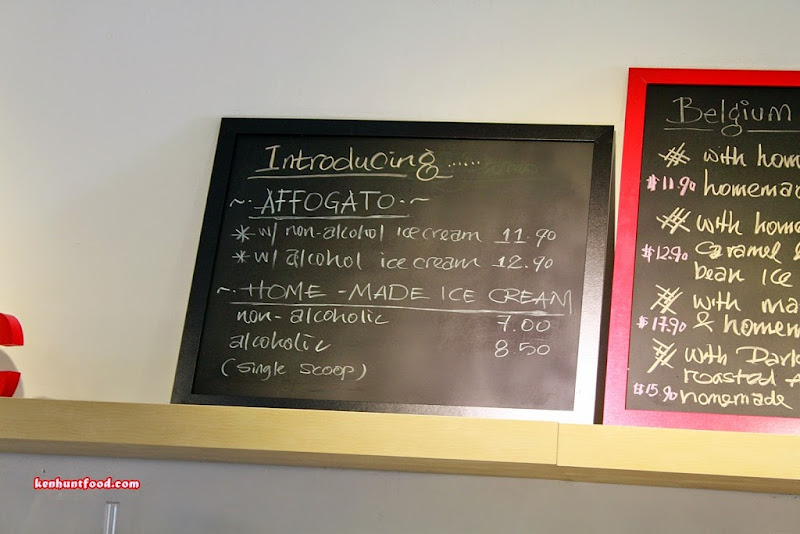 Introducing ......
~. AFFOGATO . ~
* w/ non-alcohol ice cream 11.90
* w/ alcohol ice cream 12.90
~. HOME - MADE ICE CREAM
non-alcoholic 7.00
alcoholic 8.50
(single scoop)
Belgium
with hom
$11.90 homemad
with home
$12.90 caramel &
bean ice
with ma
$17.90 & homem
with Dark
roasted
$15.90 homemade
kenhuntfood.com